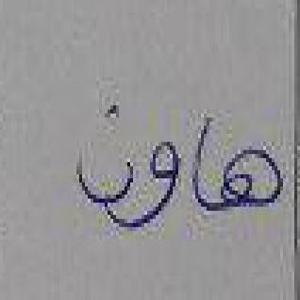 هاون